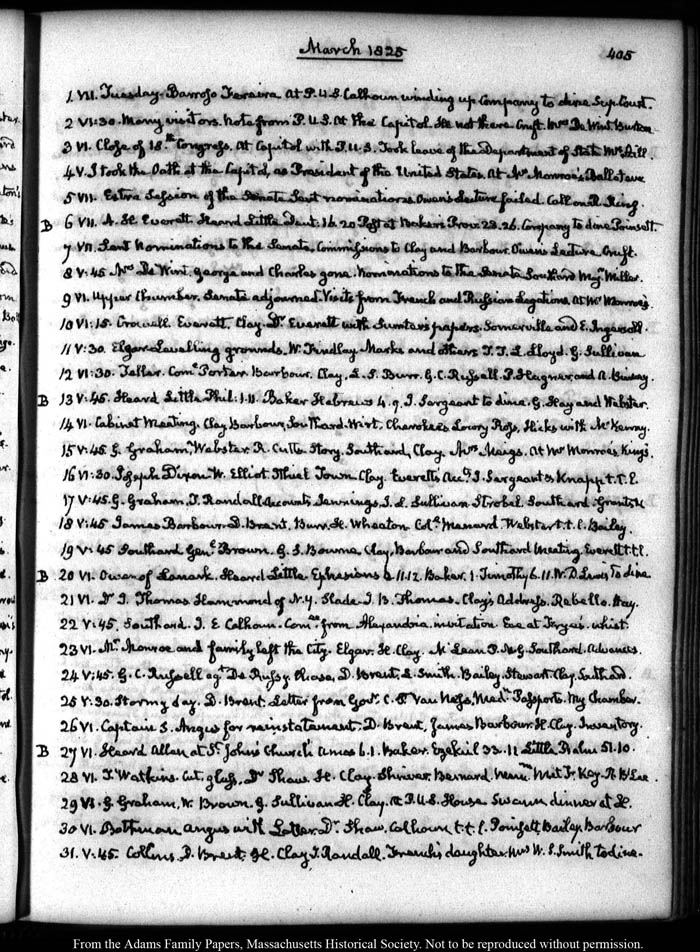 March 1825
405
1 VII. Tuesday. Barrozo Pereira at P.U.S. Calhoun winding up Company to dine Sup. Court.
2 VI:30. Many visitors. Note from P.U.S. At the Capitol. He not there Cruft. Mrs De Wint
3 VI. Close of 18th Congress. At Capitol with P.U.S. Took leave of the Department of State
4 V. I took the Oath at the Capitol, as President of the United States. At Mr Monroe's. Ball
5 VII. Extra Session of the Senate sent nominations. Owen's Lecture failed. Call on R. King.
B 6 VII. A. H. Everett. Heard Little Deut: 16.20 Post at Baker's Prov: 23.26. Company to dine Poinsett.
7 VII. Sent Nominations to the Senate. Commissions to Clay and Barbour. Owen's Lecture Cruft.
8 V:45 Mrs De Wint. George and Charles gone. Nominations to the Senate Southard Majr Miller.
9 VI. Upper Chamber. Senate adjourned. Visits from French and Russian Legations. At Mr Monroe's
10 VI:15. Crowell. Everett. Clay. Dr Everett with Sumter's papers. Somerville and E. Ingersoll.
11 V:30. Elgar Levelling grounds. W. Findlay Marks and others T. J. L. Lloyd. G. Sullivan
12 VI:30. Taller. Comr Porter. Barbour. Clay. G. C. Russell. and A. Binney.
B 13 V:45. Heard Little Phil: 1.11. Baker Hebrews 4.9. J. Sergeant to dine. G. Hay and Webster.
14 VI. Cabinet Meeting. Clay Barbour, Southard. Wirt. Cherokees Lowry Ross, Hicks with McKenney.
15 V:45. G. Graham, Webster. R. Cutts Story. Southard, Clay. Mrs Meigs. At Mr Monroe's King's.
16 VI:30. Joseph Dixon W. Elliot Ithiel Town Clay. Everett's Acct J. Sergeant & Knapp t.t.l.
17 V:45. G. Graham, T. Randall Accounts Jennings J. L. Sullivan Strobel Southard
18 V:45 James Barbour. D. Brent, Burr. H. Wheaton Coll Menard. Webster t.t.l. Bailey.
19 V:45 Southard Genl Brown. G. S. Bourne, Clay, Barbour and Southard Meeting. Everett t.t.l.
B 20 VI. Owen of Lanark. Heard Little Ephesians 2.11.12. Baker. 1. Timothy 6.11. W. D. Lewis to dine
21 VI. Dr J. Thomas Hammond of N.Y. Slade J. B. Thomas. Clay's Address. Rebello. Hay.
22 V:45. Southard. J. E. Calhoun. Comee from Alexandria. invitation Eve at Tingey's. whist.
23 VI. Mr Monroe and family left the City. Elgar. H. Clay. McLean P.M.G. Southard. Advances.
24 V:45. G. C. Russell agt De Russy. D. Brent. L. Smith. Bailey Stewart. Clay. Southard.
25 V:30. Stormy day. D. Brent. Letter from Govr C. P. Van Ness. Passports. My Chamber.
26 VI. Captain S. Angus for reinstatement. D. Brent, James Barbour. H. Clay. Inventory.
B 27 VI. Heard Allen at St John's Church Amos 6.1. Baker. Ezekiel 33.11 Little. Psalm 51.10.
28 VI. T. Watkins. Cut glass, Dr Thaw. H. Clay. Shriver. Bernard. F. Key. R. B. Lee.
29 VI. G. Graham, W. Brown. G. Sullivan H. Clay. At P.U.S. House Swann dinner at H.
30 VI. Angus with Letter. Dr Thaw. Calhoun t.t.l. Poinsett Bailey. Barbour
31. V:45. Collins. D. Brent. H. Clay T. Randall. French's daughter. Mrs W. S. Smith to dine.
From the Adams Family Papers, Massachusetts Historical Society. Not to be reproduced without permission.